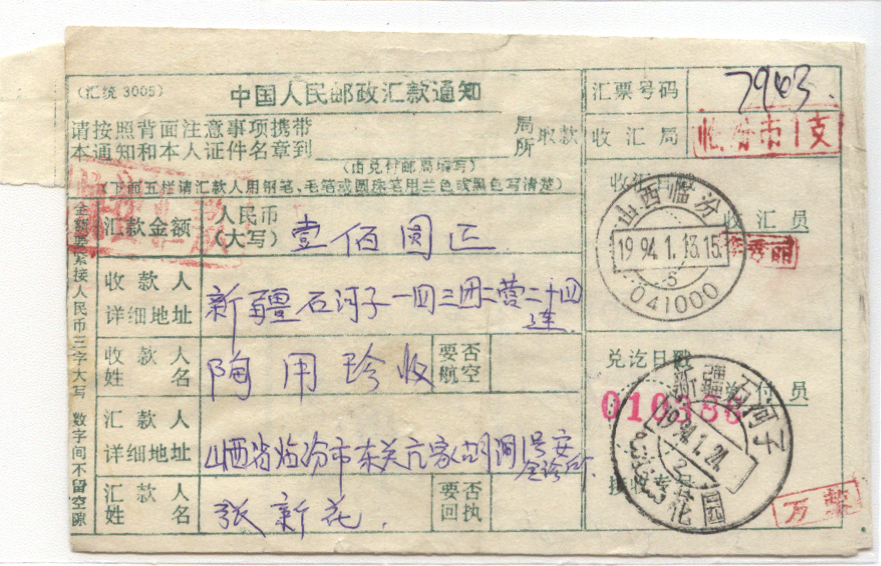 (汇统 3005)
中国人民邮政汇款通知
请按照背面注意事项携带
本通知和本人证件名章到
局
所
取款
(由兑付邮局填写)
(下面五样请汇款人用钢笔、毛笔或圆珠笔用兰色或黑色写清楚)
金额要紧接人民币三字大写 数字间不留空隙
汇款金额
人民币
(大写)
壹佰圆正
收款人
详细地址
新疆石河子一四三团二营二十四
连
收款人
姓名
陶用珍收
要否
航空
汇款人
详细地址
山西省临汾市东关亢家胡洞1号安
汇款人
姓名
张新花
要否
回执
汇票号码
7943
收汇局
临汾市1支
收汇日戳
山西临汾
1994.1.13.15
5
041000
收汇员
李秀丽
兑讫日戳
兑付员
010386
新疆石河子
1994.1.24
接收
万